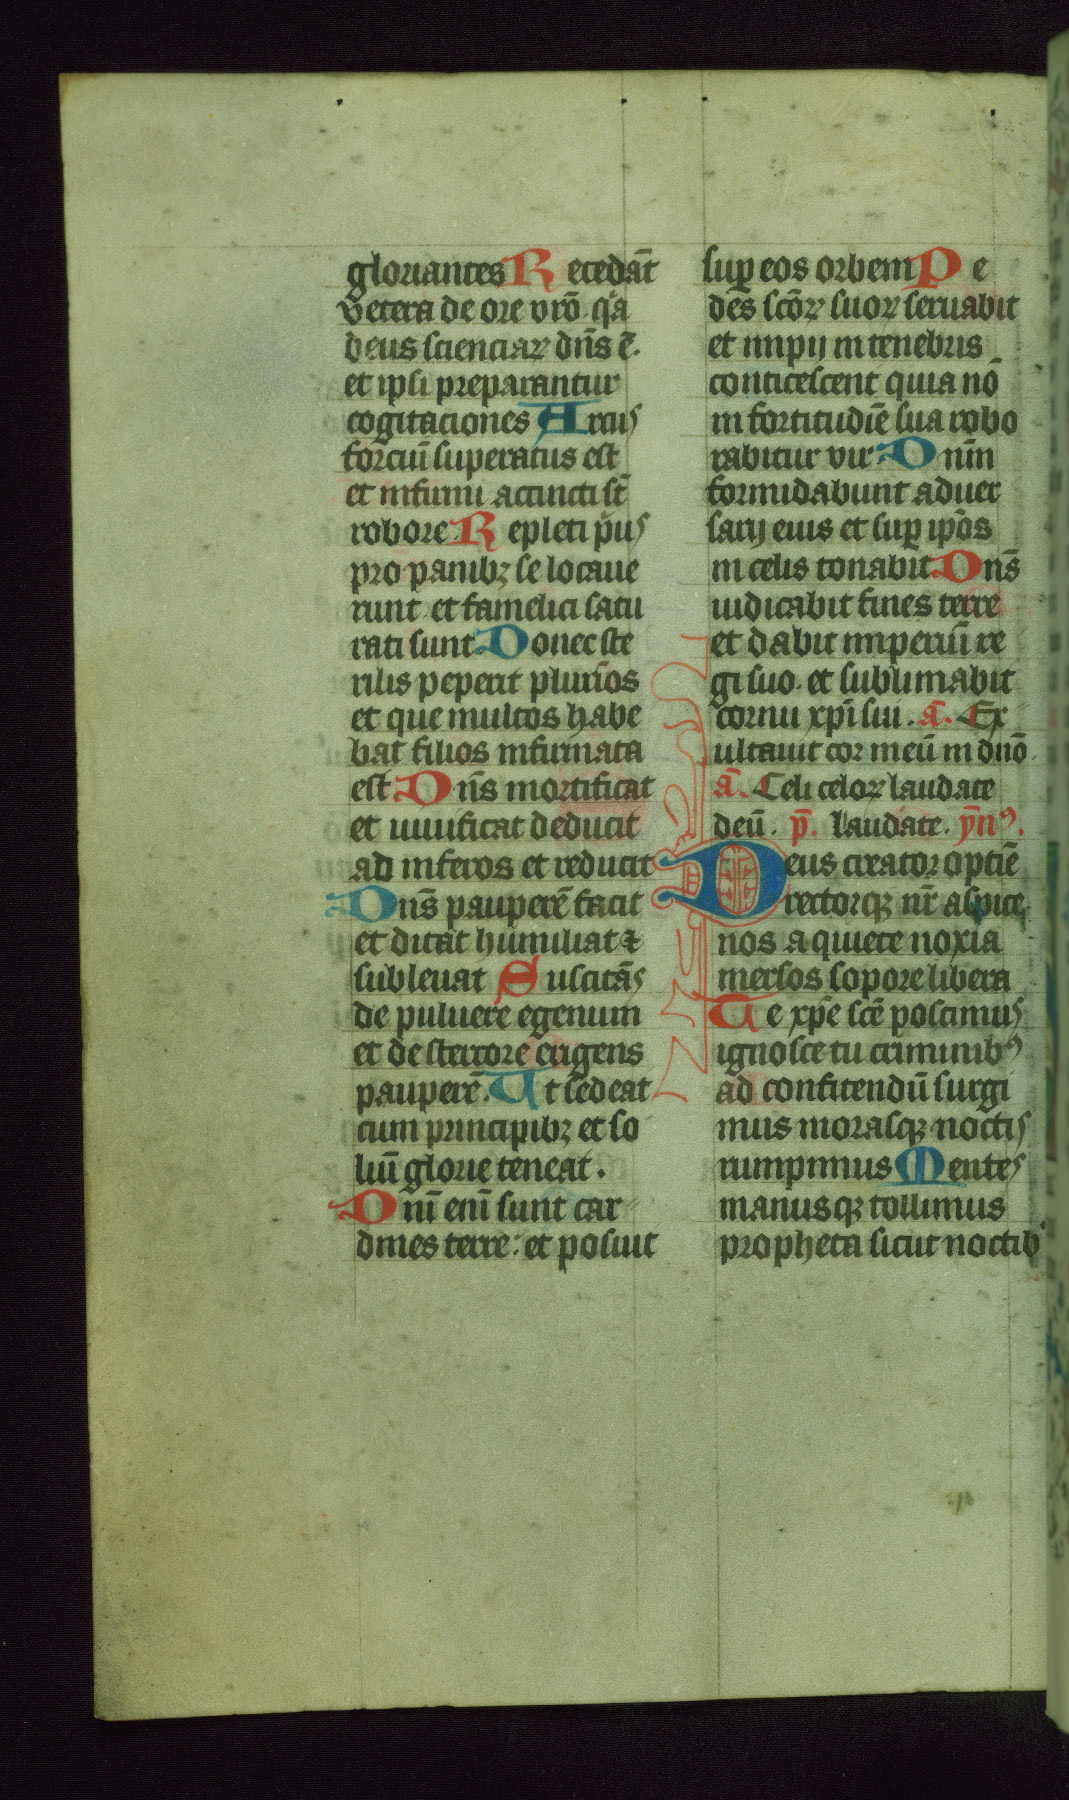 gloriantes Recedāt
vetera de ore vrō. q̄a
deus scienciaꝝ dn̄s ē.
et ipsi preparantur
cogitaciones Arcus
forciū superatus est
et infirmi accincti st̄
robore. Repleti p̄us
pro panibꝫ se locaue
runt et famelici satu
rati sunt. Donec ste
rilis peperit plurīos
et que multos habe
bat filios infirmata
est Dn̄s mortificat
et uiuificat deducit
ad inferos et reducit
Dn̄s pauperē facit
et ditat humiliat ⁊
subleuat Suscitās
de puluere egenum
et de stercore erigens
pauperē. Ut sedeat
cum principibꝫ et so
liū glorie teneat.
Dnī enī sunt car
dines terre: et posuit
suꝑ eos orbem Pe
des scōꝝ suoꝝ seruabit
et impij in tenebris
conticescent quia nō
in fortitudīe sua robo
rabitur vir: Dnīm
formidabunt aduer
sarij eius et suꝑ ip̄os
in celis tonabit. Dn̄s
iudicabit fines terre
et dabit imperiū re
gi suo. et sublimabit
cornu xp̄i sui. ā. Ex
ultauit cor meū in dn̄o.
ā. Celi celoꝝ laudate
deū. p̄. laudate. ȳnꝰ.
Deus creator optīe
rectorqꝫ nr̄ aspice
nos a quiete noxia
mersos sopore libera
Te xp̄e scē poscimus
ignosce tu criminibꝰ
ad confitendū surgi
mus morasqꝫ noctis
rumpimus Mentes
manusqꝫ tollimus
propheta sicut noctibꝰ